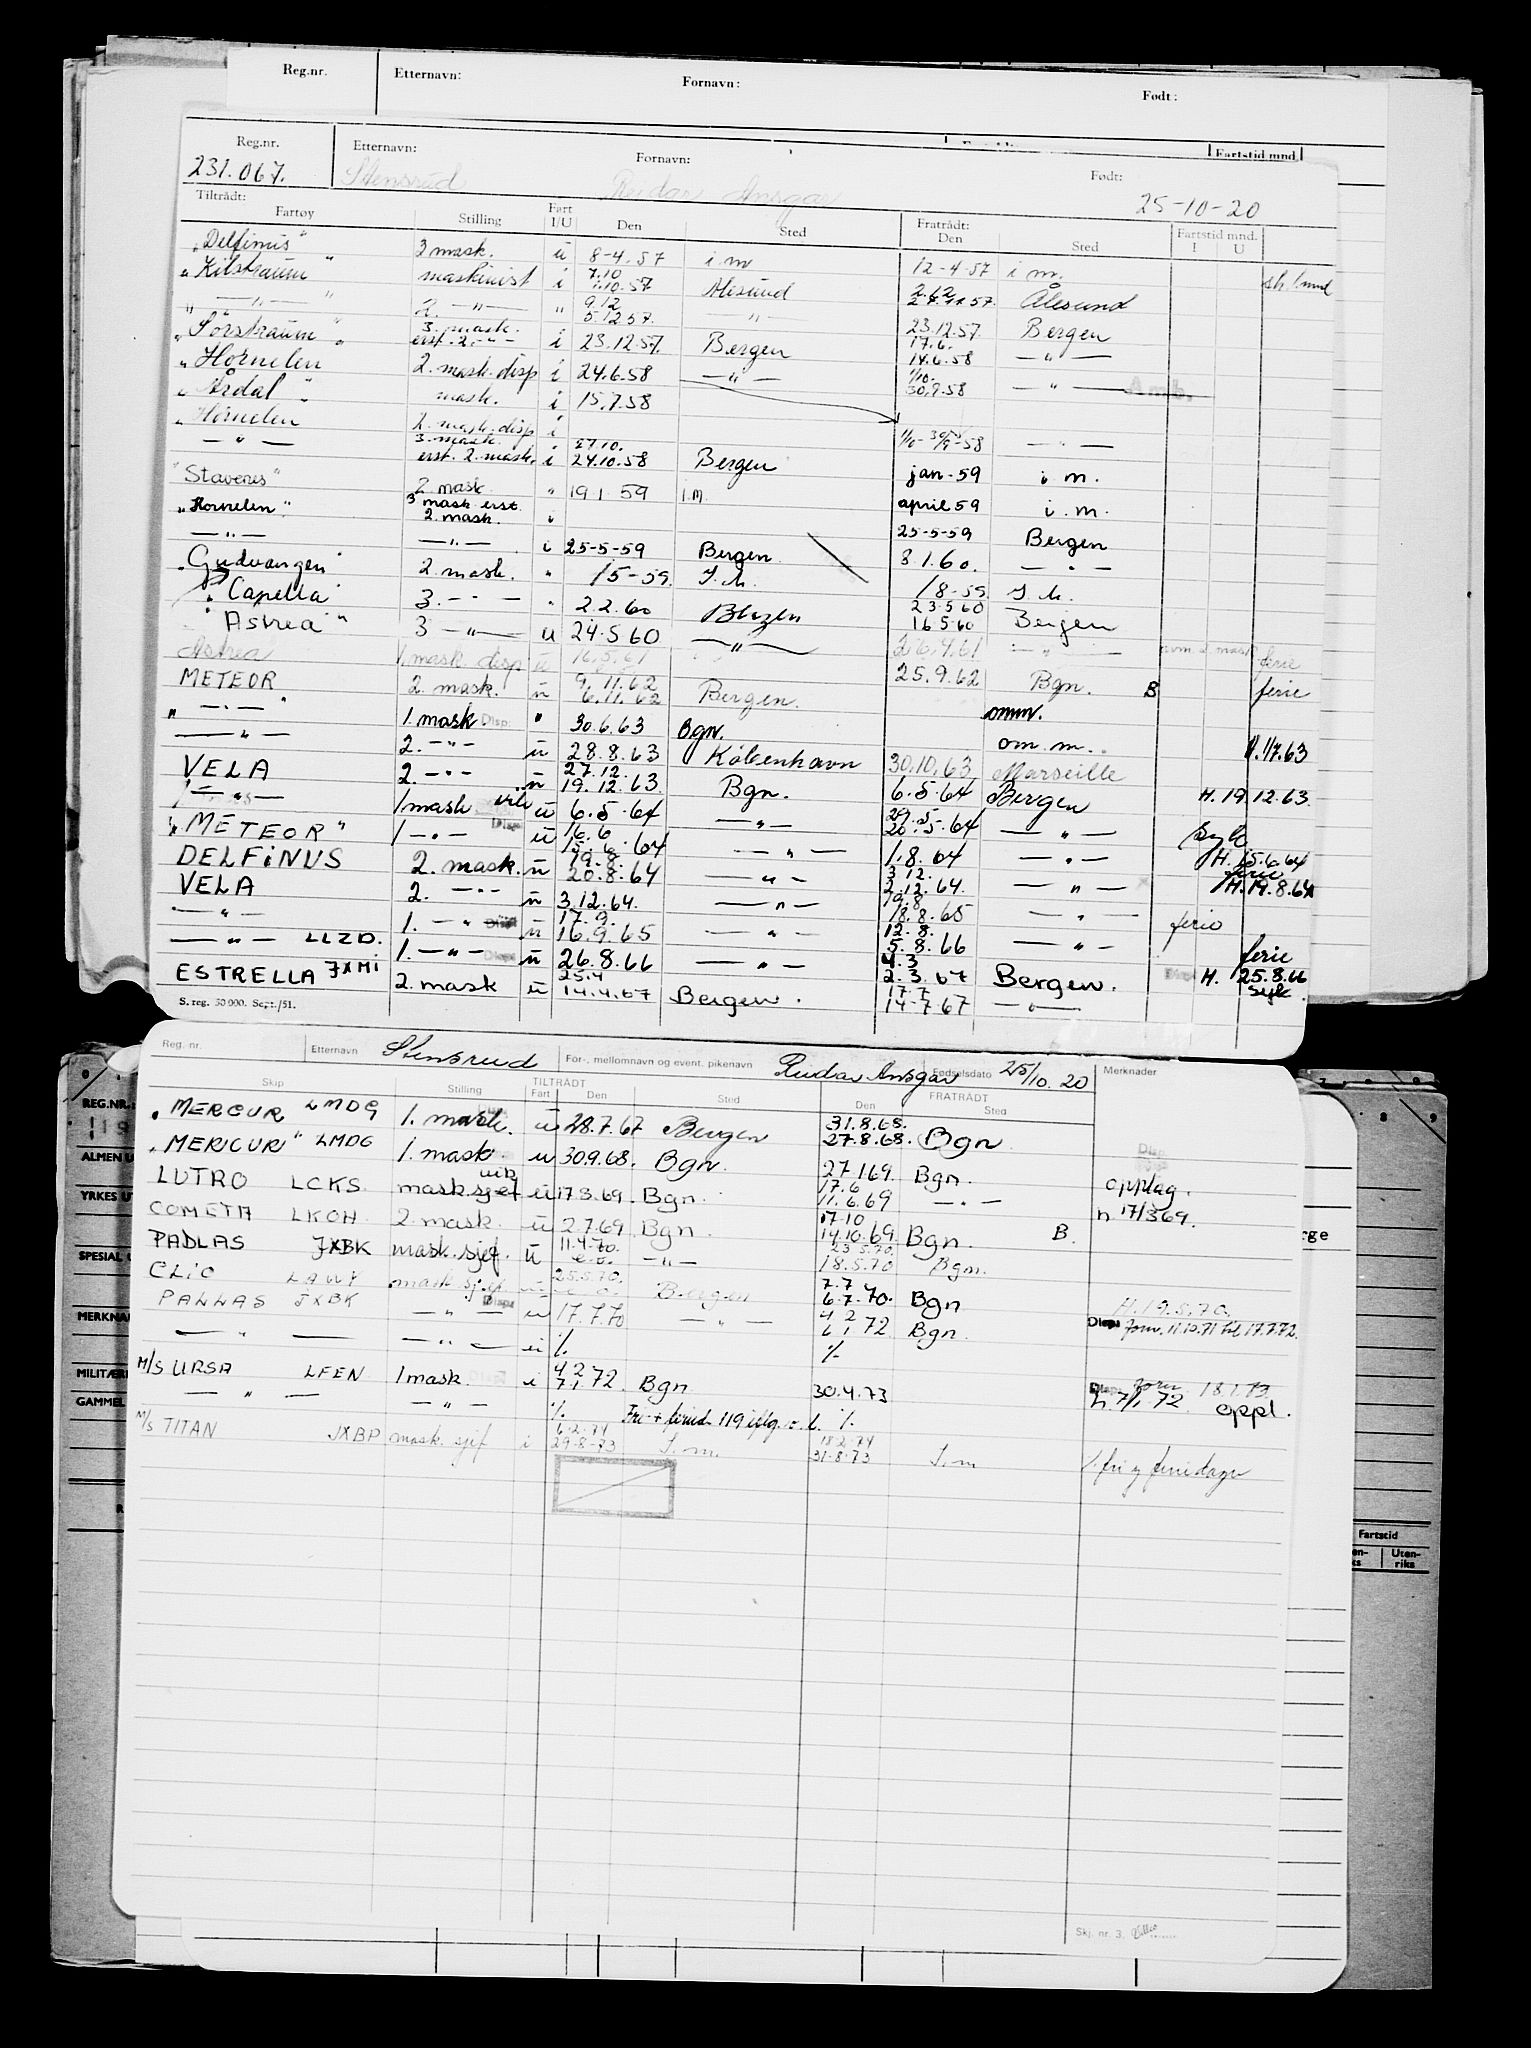 Reg.nr. Etternavn: Fornavn: Født:
Reg.nr. Etternavn: Fornavn: Fartstid mnd.
231.067. Stensrud Reidar Ansgar Født: 25-10-20
Tiltrådt: Fartøy Stilling Fart I/U Den Sted Fratrådt: Den Sted Fartstid mnd. I U
"Delfinus" 3 mask. u 8-4.57 i.m 12-4-57 i m.
"Kilstraum" maskinist i 7.10 1.10.57 Ålesund Ålesund
" —"— " 2. —"— " 9.12 5.12.57. —"— 23.12.57. Bergen
"Sørstraum" 3. mask. erst. 2. —"— i 23.12.57. Bergen 17.6. 14.6.58 —"—
"Hornelen 2. mask. disp i 24.6.58 —"— 1/10. 30.9.58 —"— Amb.
"Årdal" mask. i 15.7.58
"Hornelen 2. mask. disp i —"—
—"— 3. mask. erst. 2. mask. i 27.10. 24.10.58 Bergen jan-59 i. m.
"Stavenes" 2 mask " 19 1 59 i.M. april 59 i. m.
"Hornelen" 3 mask erst. 2. mask. " 25-5-59 Bergen
—"— —"— i 25-5-59 Bergen 8.1.60. —"—
"Gudvangen" 2. mask. " /5-59. I.M. /8-59 I M.
"Capella" 3. —"— " 2.2.60 Bergen 23.5.60 16.5.60 Bergen
"Astrea" 3 —"— u 24.5.60 —"— 26.4.61 —"—
Astrea 1. mask. disp u 16.5.61 25.9.62 Bgn. B ferie
METEOR 2. mask. u 9.11.62 6.11.62 Bergen. omm. ferie
" —"— " 1. mask Disp. " 30.6.63 Bgn. om.m. 1/7.63
—"— 2. —"— u 28.8.63 København 30.10.63 Marseille
VELA 2. —"— u 27.12. 19.12.63. Bgn. 6.5.64 Bergen H. 19.12.63.
—"— 1 mask vik u 6.5.64 —"— 29.5 20.5.64 —"— Syk
"METEOR" 1 —"— Disp u 16.6 15.6.64 —"— 1.8.64 —"— H. 15.6.64 ferie
DELFiNUS 2. mask. u 19.8. 20.8.64 —"— 3.12. 2.12.64. —"— H. 19.8.64
VELA 2. —"— u 3.12.64. —"— 19.8 18.8.65 —"— ferie
—"— 1. —"— Disp u 17.9. 16.9.65 —"— 12.8. 5.8.66 —"— ferie
—"— LLZD. 1. —"— Disp u 26.8.66 —"— 4.3 2.3.67 Bergen. Disp H. 25.8.66 syk.
ESTRELLA JXMi 2. mask u 25.4 14.4.67 Bergen. 17.7 14.7.67 —"—
S. reg. 50 000. Sept./51.
Reg. nr. Etternavn Stensrud For-, mellomnavn og event. pikenavn Reidar Ansgar Fødselsdato 25/10.20 Merknader
Skip Stilling TILTRÅDT Fart Den Sted FRATRÅDT Den Sted
"MERCUR LMDG 1. mask. u 28.7.67 Bergen 31.8.68. 27.8.68. Bgn
"MERCUR" LMDG 1. mask. u 30.9.68. Bgn. 27 1 69. Bgn. Disp opplag.
LUTRO LCKS mask.sjef vik u 17.3.69. Bgn. 17.6 11.6.69 —"— h 17/3 69.
COMETA LKOH 2. mask. u 2.7.69 Bgn. 17.10 14.10.69. Bgn. B.
PALLAS JXBK mask. sjef. u 11.4.70. —"— 23.5.70. 18.5.70 Bgn.
CLIO mask.sjef u 25.5.70. Bergen 7.7 6.7.70. Bgn H. 19.5.70.
PALLAS JXBK —"— Disp u 17.7.70 —"— 4 2 6 1 72 Bgn. Disp form. 11.10.71 til 17.1.72.
—"— —"— u % %
M/S URSA LFEN 1 mask. i 4 2 7 1 72. Bgn 30.4.73 h 7/1 72 18.1.73 oppl.
—"— —"— % Fri + feried. 119 %
M/s TITAN JXBP mask. sjef i 6.2.74 29-8-73 I. m. 18.2.74 31.8.73 I. m fri og feriedager
REG.NR.:
ALMEN U
YRKES U
SPESIAL
MERKNA
MILITÆR
GAMMEL
rge
Fartstid
Uten-riks
Skj. nr. 3.